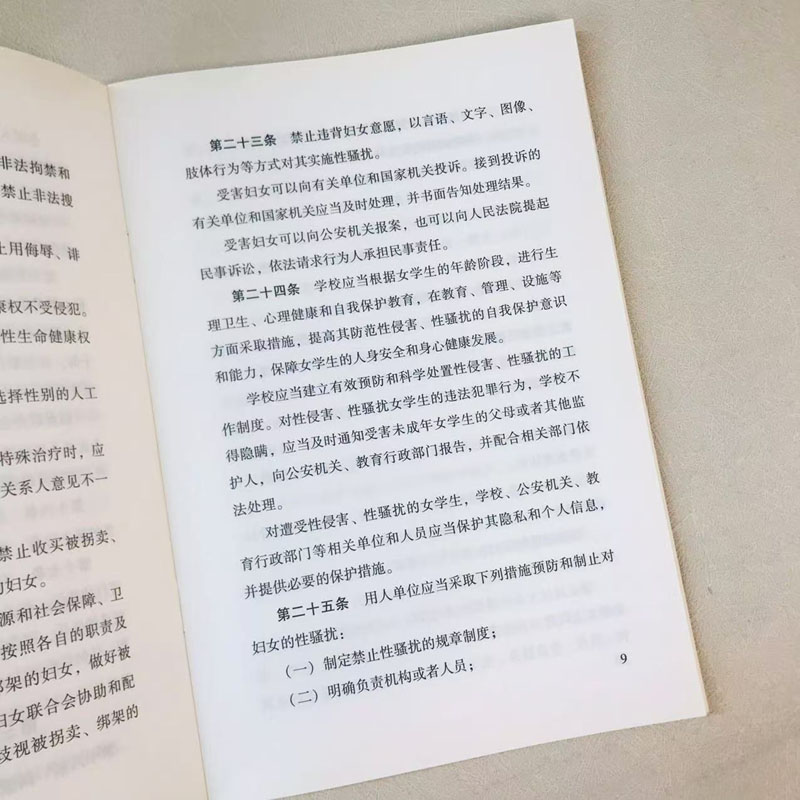 非法拘禁和
禁止非法搜
止用侮辱、诽
康权不受侵犯。
性生命健康权
选择性别的人工
特殊治疗时，应
关系人意见不一
禁止收买被拐卖、
的妇女。
源和社会保障、卫
按照各自的职责及
绑架的妇女，做好被
妇女联合会协助和配
歧视被拐卖、绑架的
第二十三条 禁止违背妇女意愿，以言语、文字、图像、
肢体行为等方式对其实施性骚扰。
受害妇女可以向有关单位和国家机关投诉。接到投诉的
有关单位和国家机关应当及时处理，并书面告知处理结果。
受害妇女可以向公安机关报案，也可以向人民法院提起
民事诉讼，依法请求行为人承担民事责任。
第二十四条 学校应当根据女学生的年龄阶段，进行生
理卫生、心理健康和自我保护教育，在教育、管理、设施等
方面采取措施，提高其防范性侵害、性骚扰的自我保护意识
和能力，保障女学生的人身安全和身心健康发展。
学校应当建立有效预防和科学处置性侵害、性骚扰的工
作制度。对性侵害、性骚扰女学生的违法犯罪行为，学校不
得隐瞒，应当及时通知受害未成年女学生的父母或者其他监
护人，向公安机关、教育行政部门报告，并配合相关部门依
法处理。
对遭受性侵害、性骚扰的女学生，学校、公安机关、教
育行政部门等相关单位和人员应当保护其隐私和个人信息，
并提供必要的保护措施。
第二十五条 用人单位应当采取下列措施预防和制止对
妇女的性骚扰：
（一）制定禁止性骚扰的规章制度；
（二）明确负责机构或者人员；
9